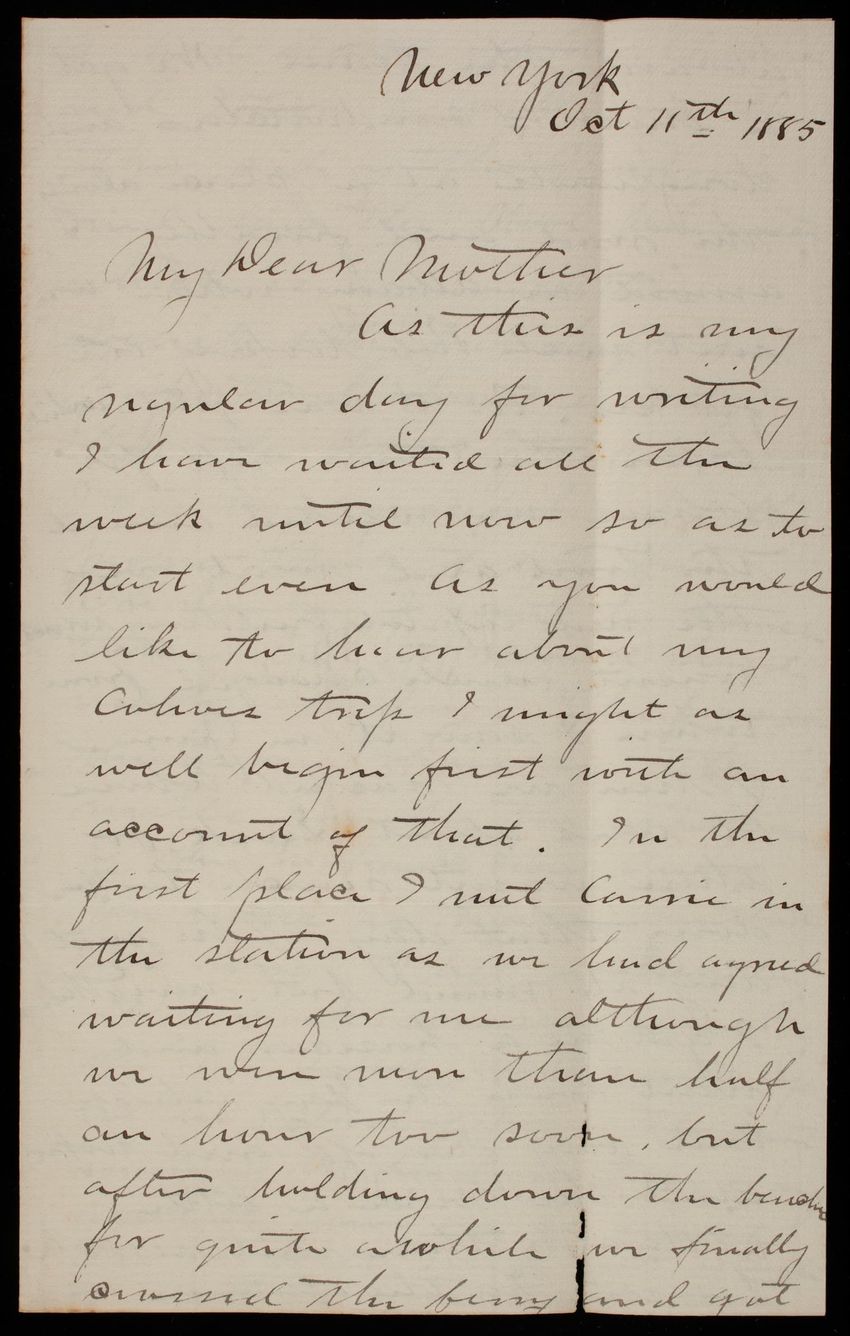 New York
Oct 11th 1885
My Dear Mother
As this is my
regular day for writing
I have waited all the
week until now so as to
start even. As you would
like to hear about my
Cohoes trip I might as
well begin first with an
account of that. In the
first place I met Carrie in
the station as we had agreed
waiting for me although
we were more than half
an hour too soon, but
after holding down the benches
for quite awhile we finally
crossed the ferry and got